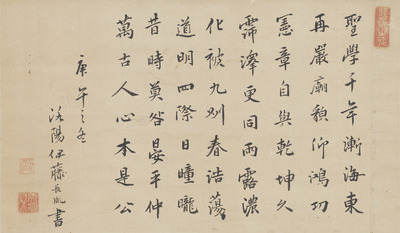 聖學千年漸海東
再嚴廟貌仰鴻功
憲章自與乾坤久
霈澤更同雨露濃
化被九州春浩蕩
道明四際日曈曨
昔時莫咎晏平仲
萬古人心本是公
庚午之冬
洛陽伊藤長胤書